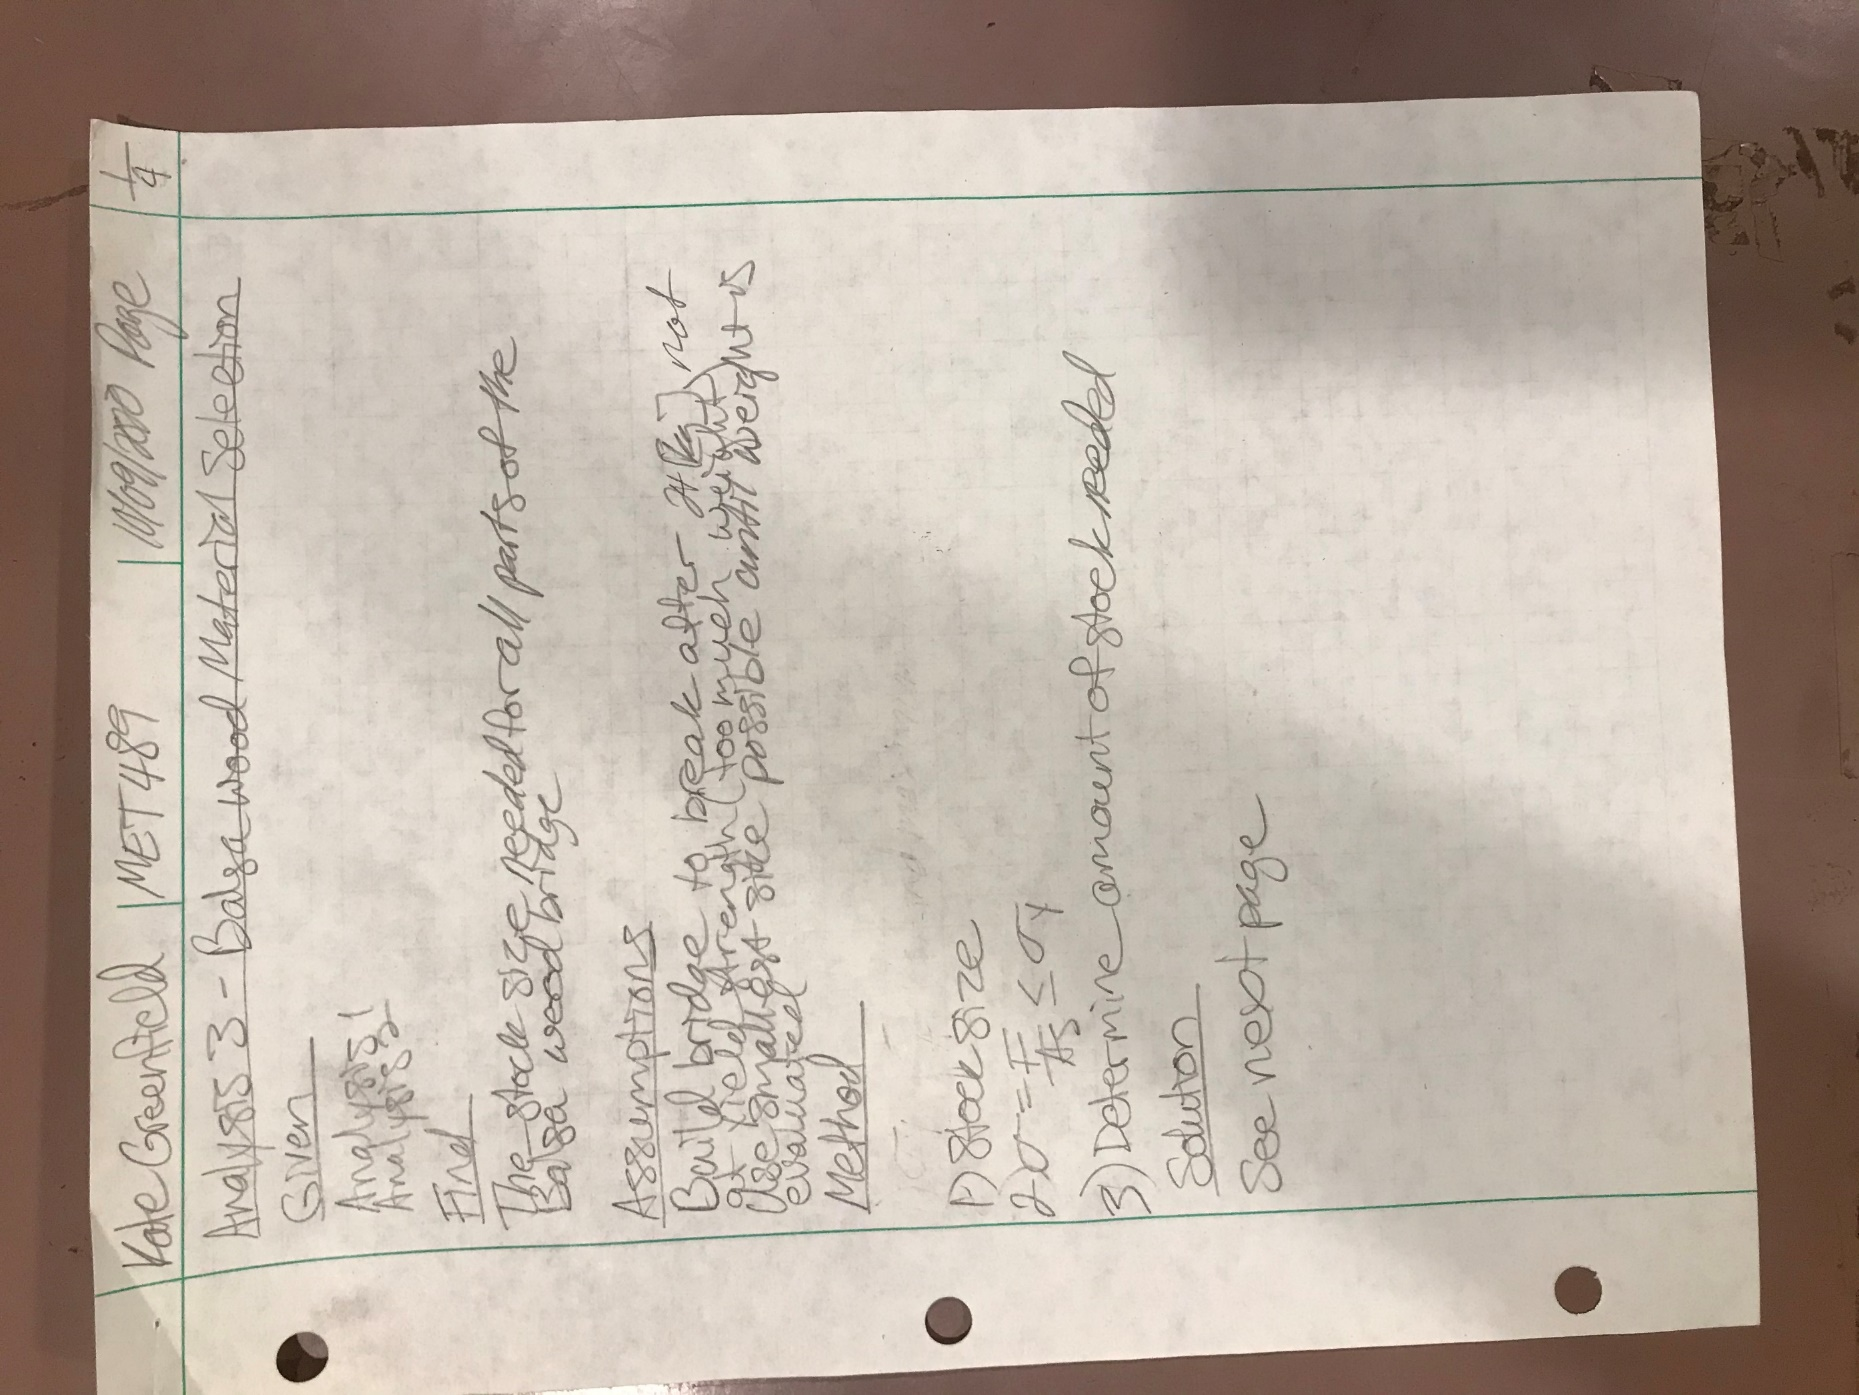 Kate Greenfield | MET489 | 10/09/2020 Page 1/4
Analysis 3 - Balsa wood Material Selection
Given
Analysis 1
Analysis 2
Find
The stock size needed for all parts of the
Balsa wood bridge
Assumptions
Build bridge to break after not
at yield strength (too much weight)
Use smallest size possible until weight is
evaluated
Method
1) Stock size
2) σ = F/As ≤ σy
3) Determine amount of stock needed
Solution
See next page